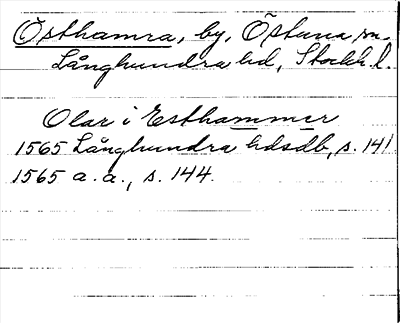 Östhamra, by, Östuna sn.
Långhundra hd, Stockh. l.
Olar i Esthammer
1565 Långhundra hdsdb, s. 141
1565 a.a., s. 144.